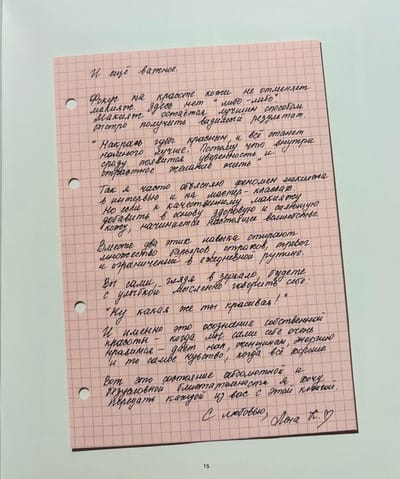 И ещё важное.
Фокус на красоте кожи не отменяет
макияж. Здесь нет "либо-либо".
Макияж остаётся лучшим способом
быстро получить видимый результат.
"Накрась губы красным, и всё станет
намного лучше. Потому что внутри
сразу появится уверенность и
страстное желание жить"
Так я часто объясняю феномен макияжа
в интервью и на мастер-классах.
Но если к качественному макияжу
добавить в основу здоровую и сияющую
кожу, начинается настоящее волшебство.
Вместе два этих навыка стирают
множество барьеров, страхов, тревог
и ограничений в ежедневной рутине.
Вы сами, глядя в зеркало, будете
с улыбкой мысленно говорить себе:
"Ну какая же ты красивая!"
И именно это осознание собственной
красоты – когда мы сами себе очень
нравимся – даёт нам, женщинам, энергию
и то самое чувство, когда всё хорошо
Вот это состояние абсолютной и
безусловной блистательности я хочу
передать каждой из вас с этой книгой.
С любовью, Лена К.
15